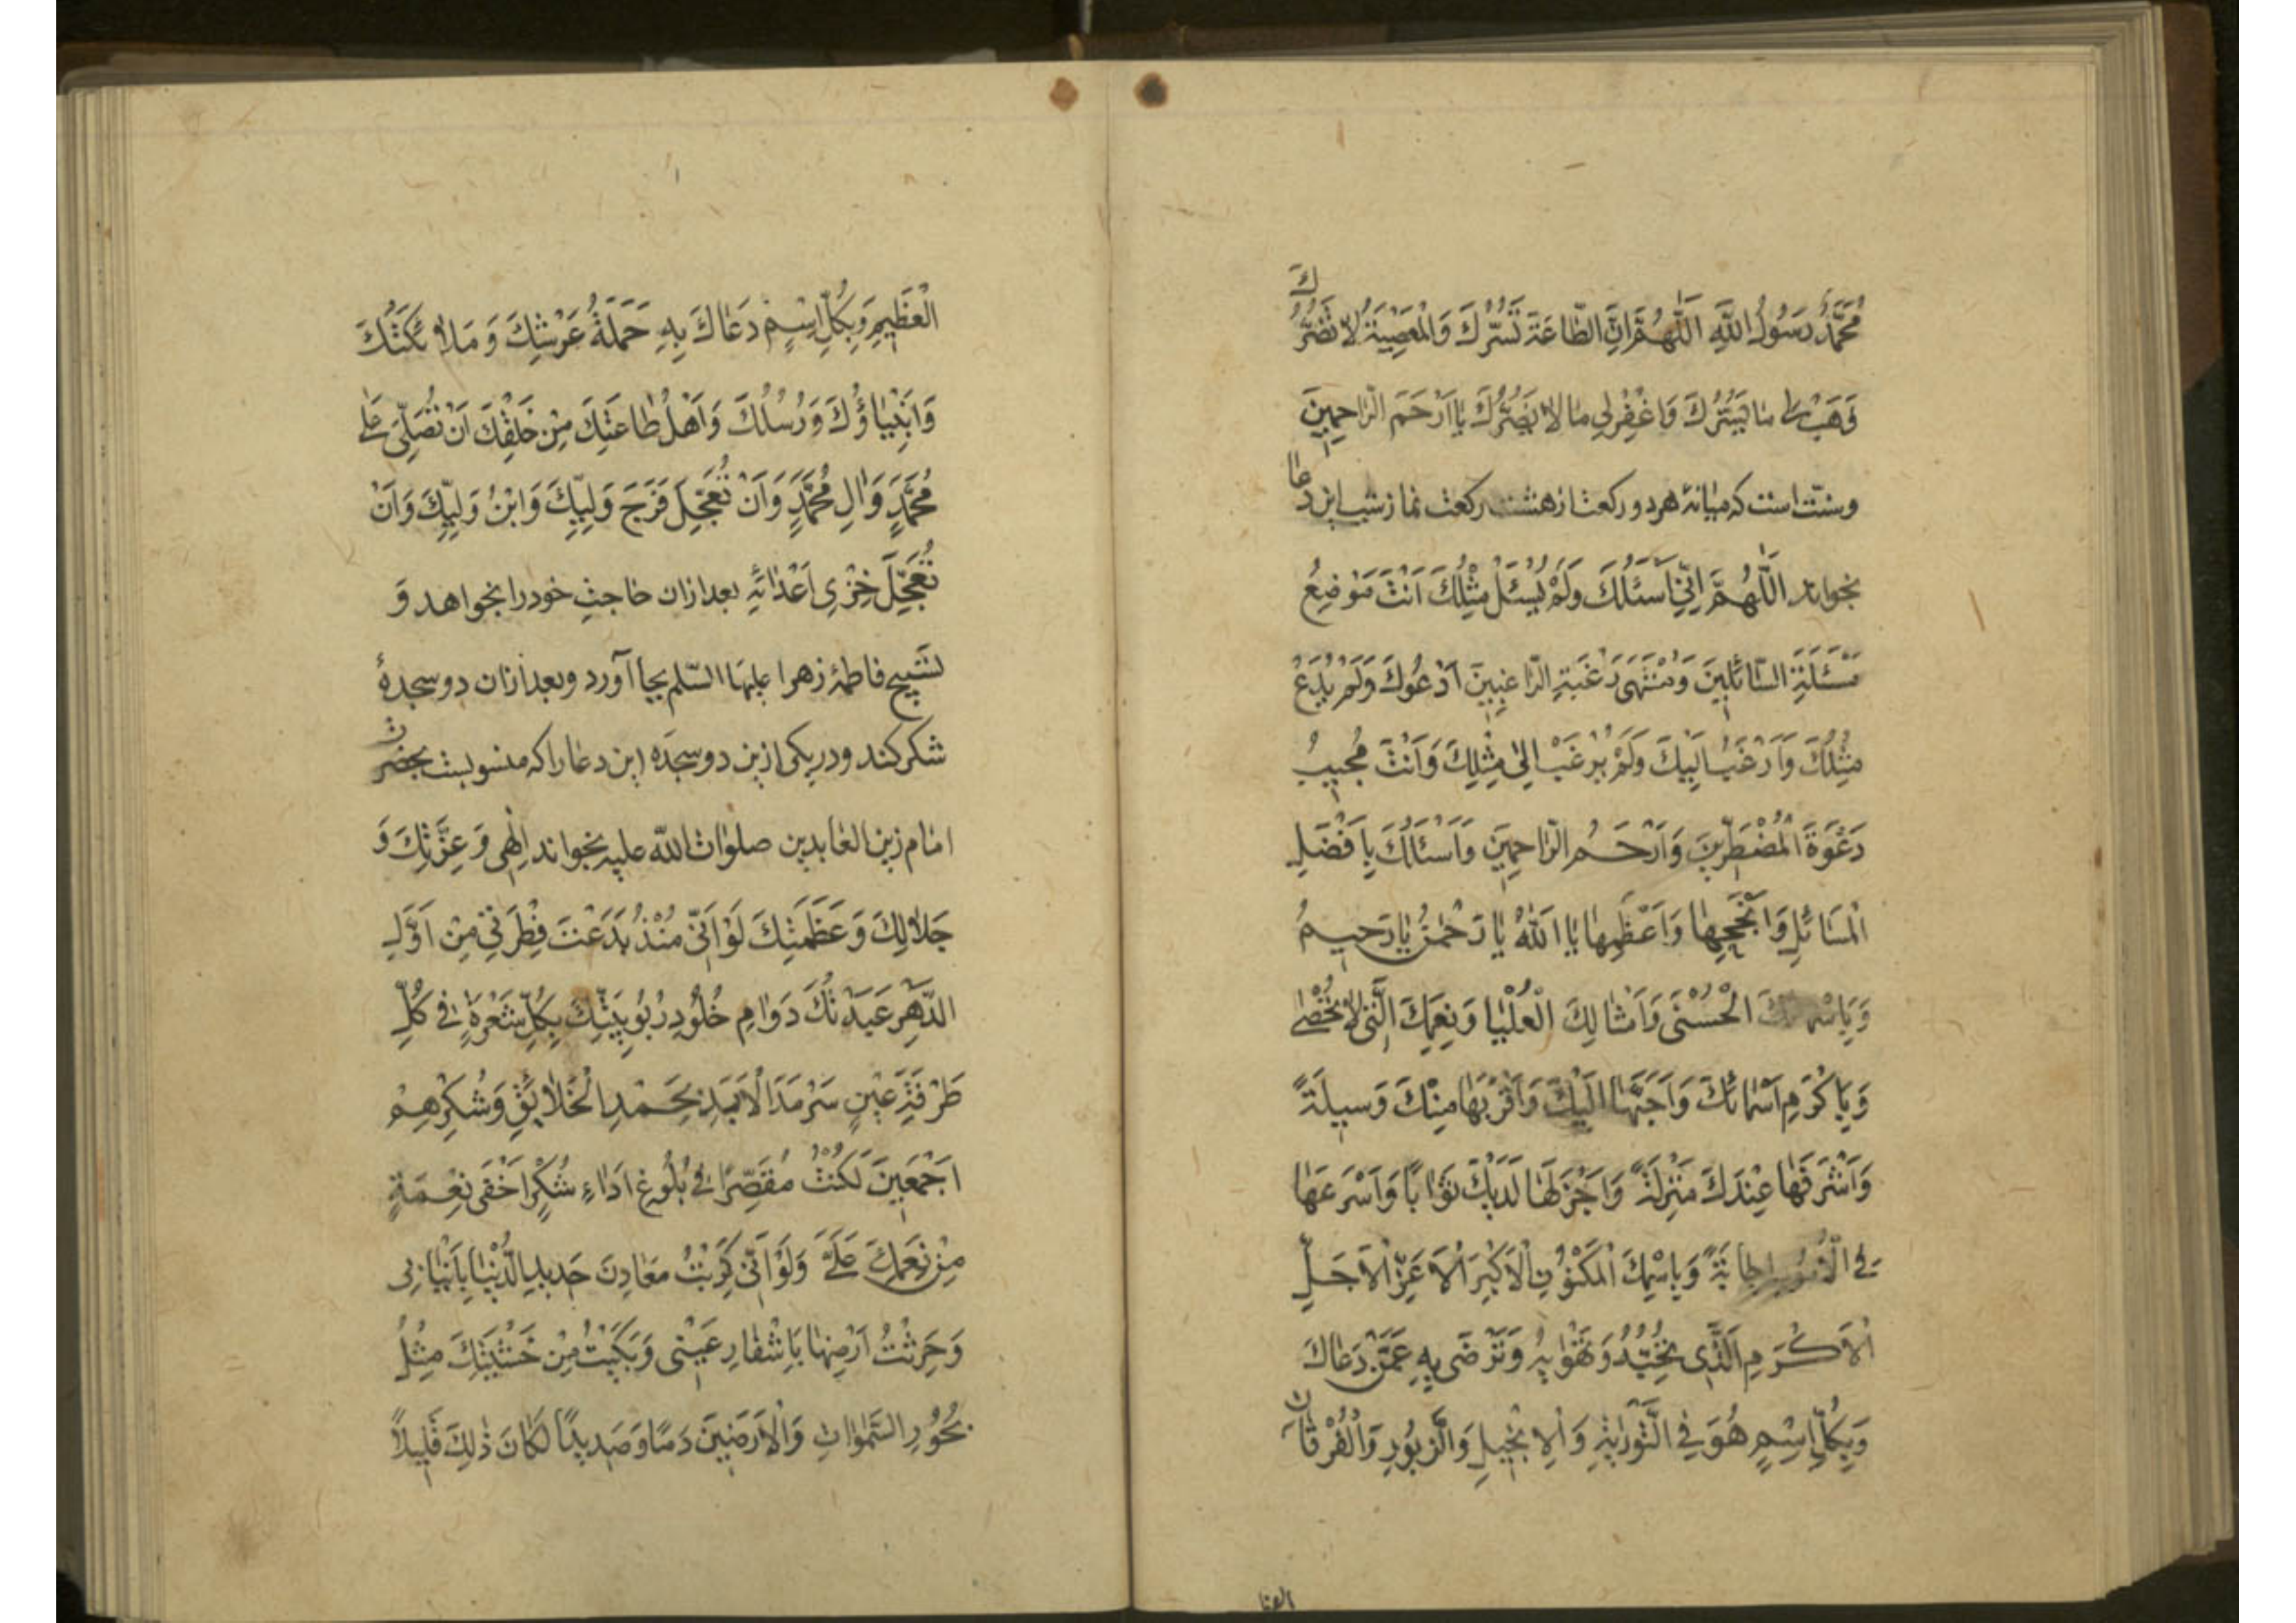 مُحَمَّدٌ رَسُولُ اللَّهِ اَللّٰهُمَّ اِنَّ الطّاعَةَ تَسُرُّكَ وَالْمَعْصِيَةَ لاٰ تَضُرُّكَ
وَهَبْ لي مٰا يَسُرُّكَ وَاغْفِرْ لي مٰا لاٰ يَضُرُّكَ يٰا اَرْحَمَ الرّٰاحِمِينَ
وسنّت است كه ميانهٔ هر دو ركعت از هشت ركعت نماز شب اين دعا
بخواند اَللّٰهُمَّ اِنِّي اَسْئَلُكَ وَلَمْ يُسْئَلْ مِثْلُكَ اَنْتَ مَوْضِعُ
مَسْئَلَةِ السّٰائِلِينَ وَمُنْتَهىٰ رَغْبَةِ الرّٰاغِبِينَ اَدْعُوكَ وَلَمْ يُدْعَ
مِثْلُكَ وَاَرْغَبُ اِلَيْكَ وَلَمْ يُرْغَبْ اِلىٰ مِثْلِكَ وَاَنْتَ مُجِيبُ
دَعْوَةَ الْمُضْطَرِّينَ وَاَرْحَمُ الرّٰاحِمِينَ وَاَسْئَلُكَ بِاَفْضَلِ
الْمَسٰائِلِ وَاَنْجَحِهٰا وَاَعْظَمِهٰا يٰا اَللّٰهُ يٰا رَحْمٰنُ يٰا رَحِيمُ
وَبِاَسْمٰائِكَ الْحُسْنىٰ وَاَمْثٰالِكَ الْعُلْيٰا وَنِعَمِكَ الَّتي لاٰ تُحْصىٰ
وَبِاَكْرَمِ اَسْمٰائِكَ وَاَحَبِّهٰا اِلَيْكَ وَاَقْرَبِهٰا مِنْكَ وَسِيلَةً
وَاَشْرَفِهٰا عِنْدَكَ مَنْزِلَةً وَاَجْزَلِهٰا لَدَيْكَ ثَوٰابًا وَاَسْرَعِهٰا
فِي الْاُمُورِ اِجٰابَةً وَبِاسْمِكَ الْمَكْنُونِ الْاَكْبَرِ الْاَعَزِّ الْاَجَلِّ
الْاَكْرَمِ الَّذِي تُحِبُّهُ وَتَهْوٰاهُ وَتَرْضىٰ بِهِ عَمَّنْ دَعٰاكَ
وَبِكُلِّ اسْمٍ هُوَ فِي التَّوْرٰيةِ وَالْاِنْجِيلِ وَالزَّبُورِ وَالْفُرْقٰانِ
الْعَظِيمِ وَبِكُلِّ اسْمٍ دَعٰاكَ بِهِ حَمَلَةُ عَرْشِكَ وَمَلاٰئِكَتُكَ
وَاَنْبِيٰاؤُكَ وَرُسُلُكَ وَاَهْلُ طٰاعَتِكَ مِنْ خَلْقِكَ اَنْ تُصَلِّيَ عَلىٰ
مُحَمَّدٍ وَاٰلِ مُحَمَّدٍ وَاَنْ تُعَجِّلَ فَرَجَ وَلِيِّكَ وَابْنِ وَلِيِّكَ وَاَنْ
تُعَجِّلَ خِزْيَ اَعْدٰائِهِ بعد ازان حاجت خود را بخواهد وَ
تسبيح فاطمهٔ زهرا عليها السّلم بجا آورد وبعد ازان دو سجدهٔ
شكر كند ودر يكى ازين دو سجده اين دعا را كه منسوبست بحضرت
امام زين العابدين صلوات اللّه عليه بخواند اِلٰهي وَعِزَّتِكَ وَ
جَلاٰلِكَ وَعَظَمَتِكَ لَوْ اَنّي مُنْذُ بَدَعْتَ فِطْرَتي مِنْ اَوَّلِ
الدَّهْرِ عَبَدْتُكَ دَوٰامَ خُلُودِ رُبُوبِيَّتِكَ بِكُلِّ شَعْرَةٍ فِي كُلِّ
طَرْفَةِ عَيْنٍ سَرْمَدَ الْاَبَدِ بِحَمْدِ الْخَلاٰئِقِ وَشُكْرِهِمْ
اَجْمَعِينَ لَكُنْتُ مُقَصِّرًا فِي بُلُوغِ اَدٰاءِ شُكْرِ اَخْفىٰ نِعْمَةٍ
مِنْ نِعَمِكَ عَلَيَّ وَلَوْ اَنّي كَرَبْتُ مَعٰادِنَ حَدِيدِ الدُّنْيٰا بِاَنْيٰابي
وَحَرَثْتُ اَرْضَهٰا بِاَشْفٰارِ عَيْني وَبَكَيْتُ مِنْ خَشْيَتِكَ مِثْلَ
بُحُورِ السَّمٰوٰاتِ وَالْاَرَضِينَ دَمًا وَصَدِيدًا لَكٰانَ ذٰلِكَ قَلِيلاً